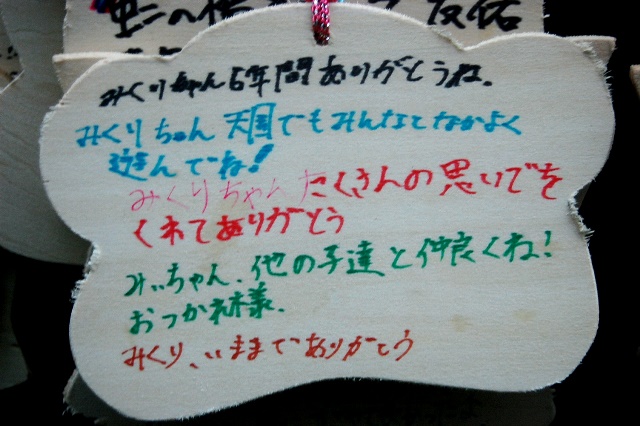 みくりちゃん6年間ありがとうね。
みくりちゃん天国でもみんなとなかよく
遊んでね!
みくりちゃんたくさんの思いでを
くれてありがとう
みぃちゃん、他の子達と仲良くね!
おつかれ様.
みくり、いままでありがとう